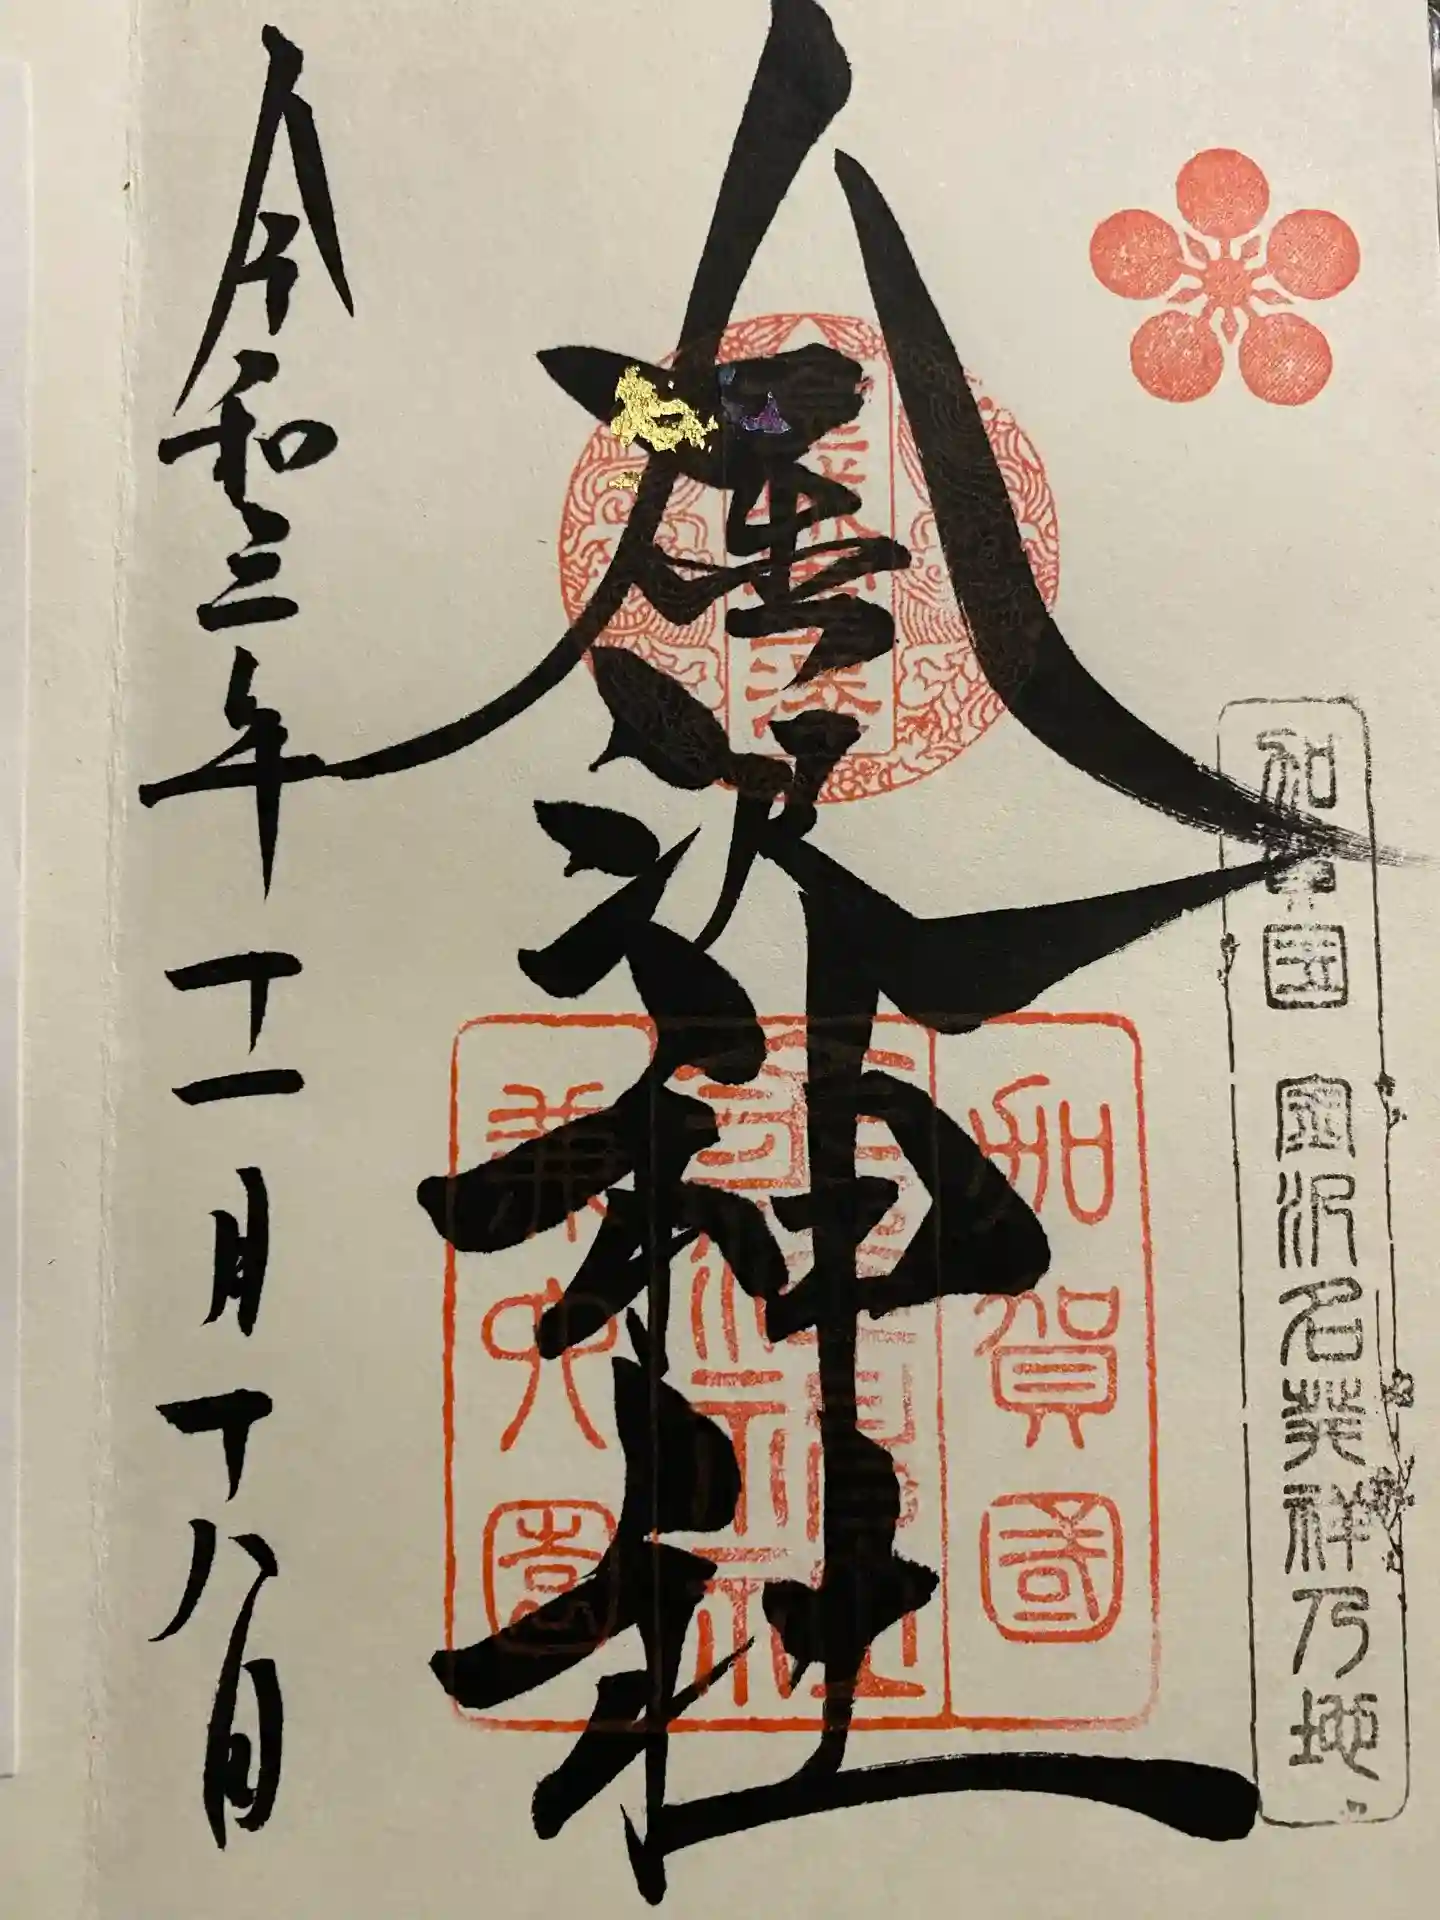 加賀国 金沢名発祥乃地
金沢神社
加賀國
金澤神社
兼六園
令和三年十一月十八日